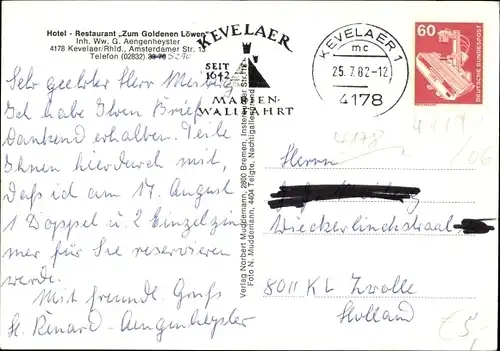 Hotel - Restaurant „Zum Goldenen Löwen"
Inh. Ww. G. Aengenheyster
4178 Kevelaer/Rhld., Amsterdamer Str. 13
Telefon (02832)
Sehr geehrter Herr
Ich habe Ihren Brief
Dankend erhalten. Teile
Ihnen hierdurch mit,
daß ich am 17. August
1 Doppel u. 2 Einzelzim
mer für Sie reservieren
werde.
Mit freundl. Gruß
H. Renard - Aengenheyster
KEVELAER
SEIT
1642
MARIEN-
WALLFAHRT
Verlag Norbert Muddemann, 2800 Bremen,
Foto N. Muddemann, 4404 Telgte, Nachtigallengrund
KEVELAER 1
mc
25.7.82-12
4178
60
DEUTSCHE BUNDESPOST
4178
/06
Herrn
8011 KL Zwolle
Holland
€5,-